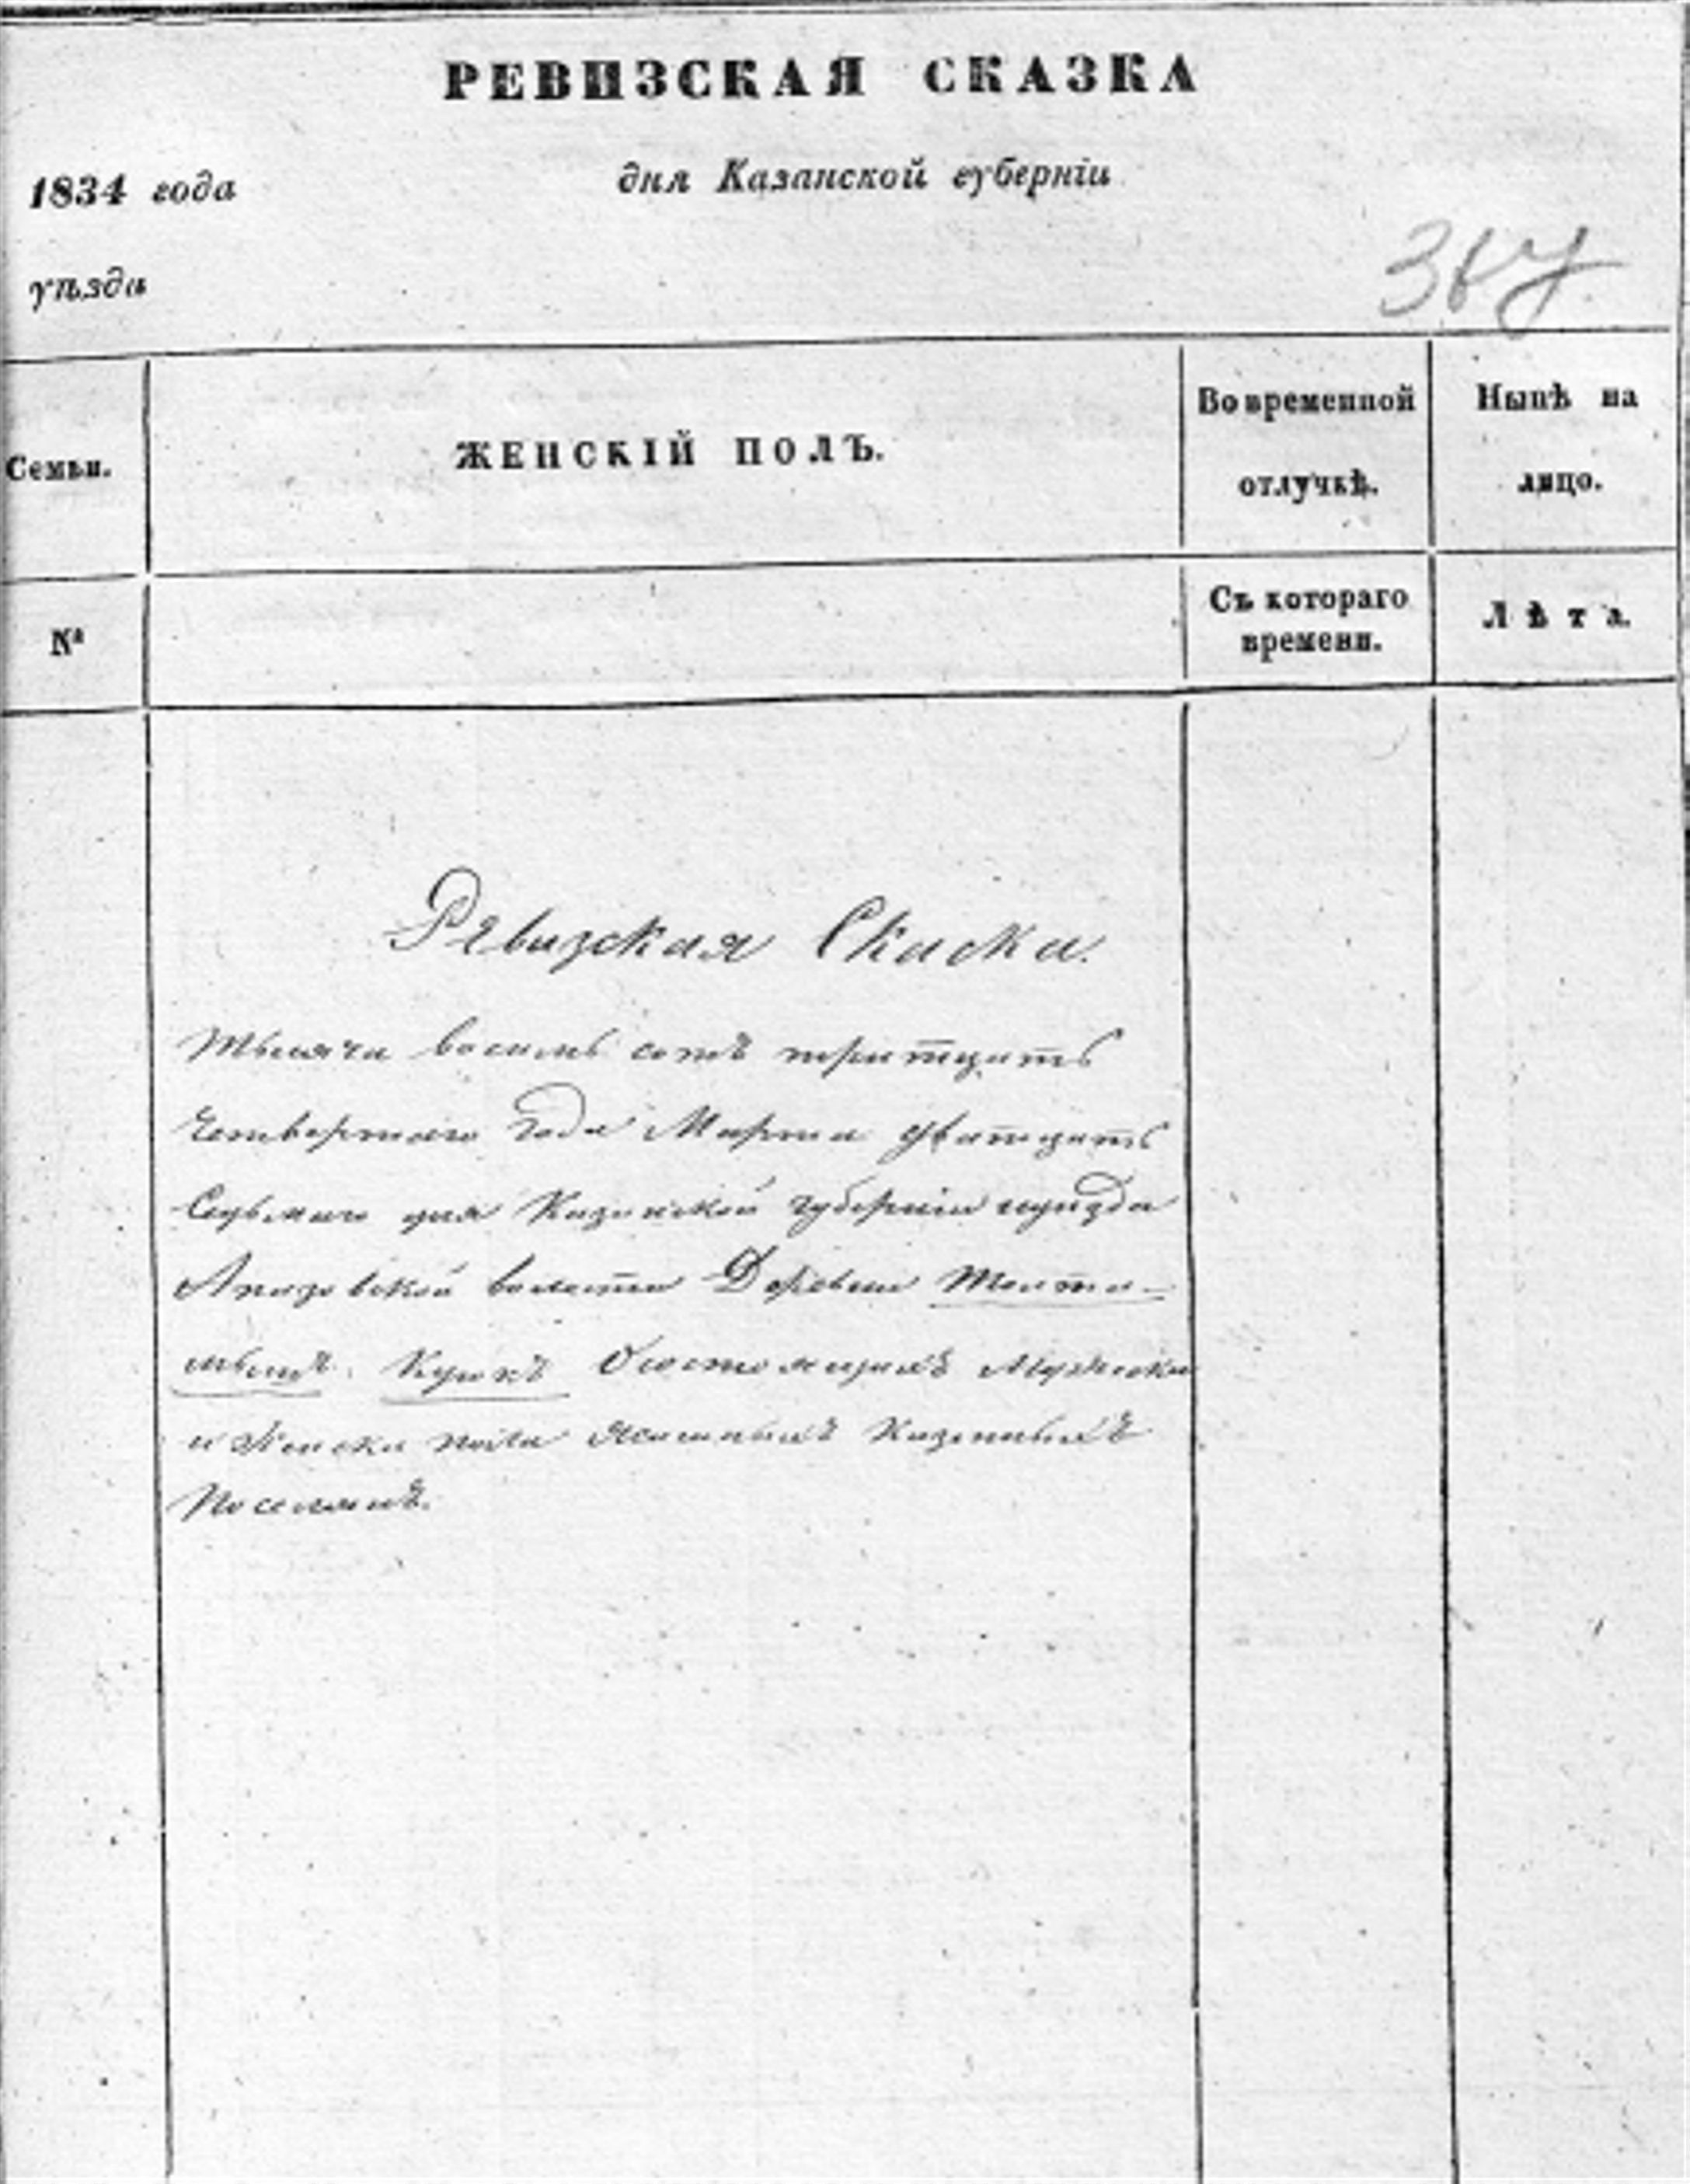 РЕВИЗСКАЯ СКАЗКА
1834 года
дня Казанской губернiи
уѣзда
Семьи.
ЖЕНСКIЙ ПОЛЪ.
Во временной
отлучкѣ.
Нынѣ на
лицо.
№
Съ котораго
времени.
Лѣта.
Ревизская Скаска.
Тысяча восемь сотъ тритцать
четвертаго года Марта дватцать
Седьмаго дня Казанской губернiи и уезда
волости Деревни
Кушкъ О состоящихъ Мужска
и Женска пола Казенныхъ
Поселянъ.